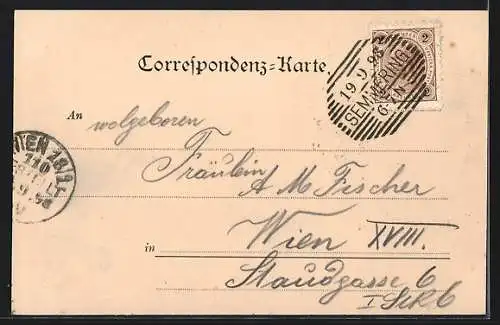 2
Correspondenz-Karte.
19 9 98
SEMMERING
6-7 N
An wolgeboren
Fräulein
A M Fischer
WIEN 18/1
110
9 98
Wien XVIII.
in
Staudgasse 6
I Stk 6